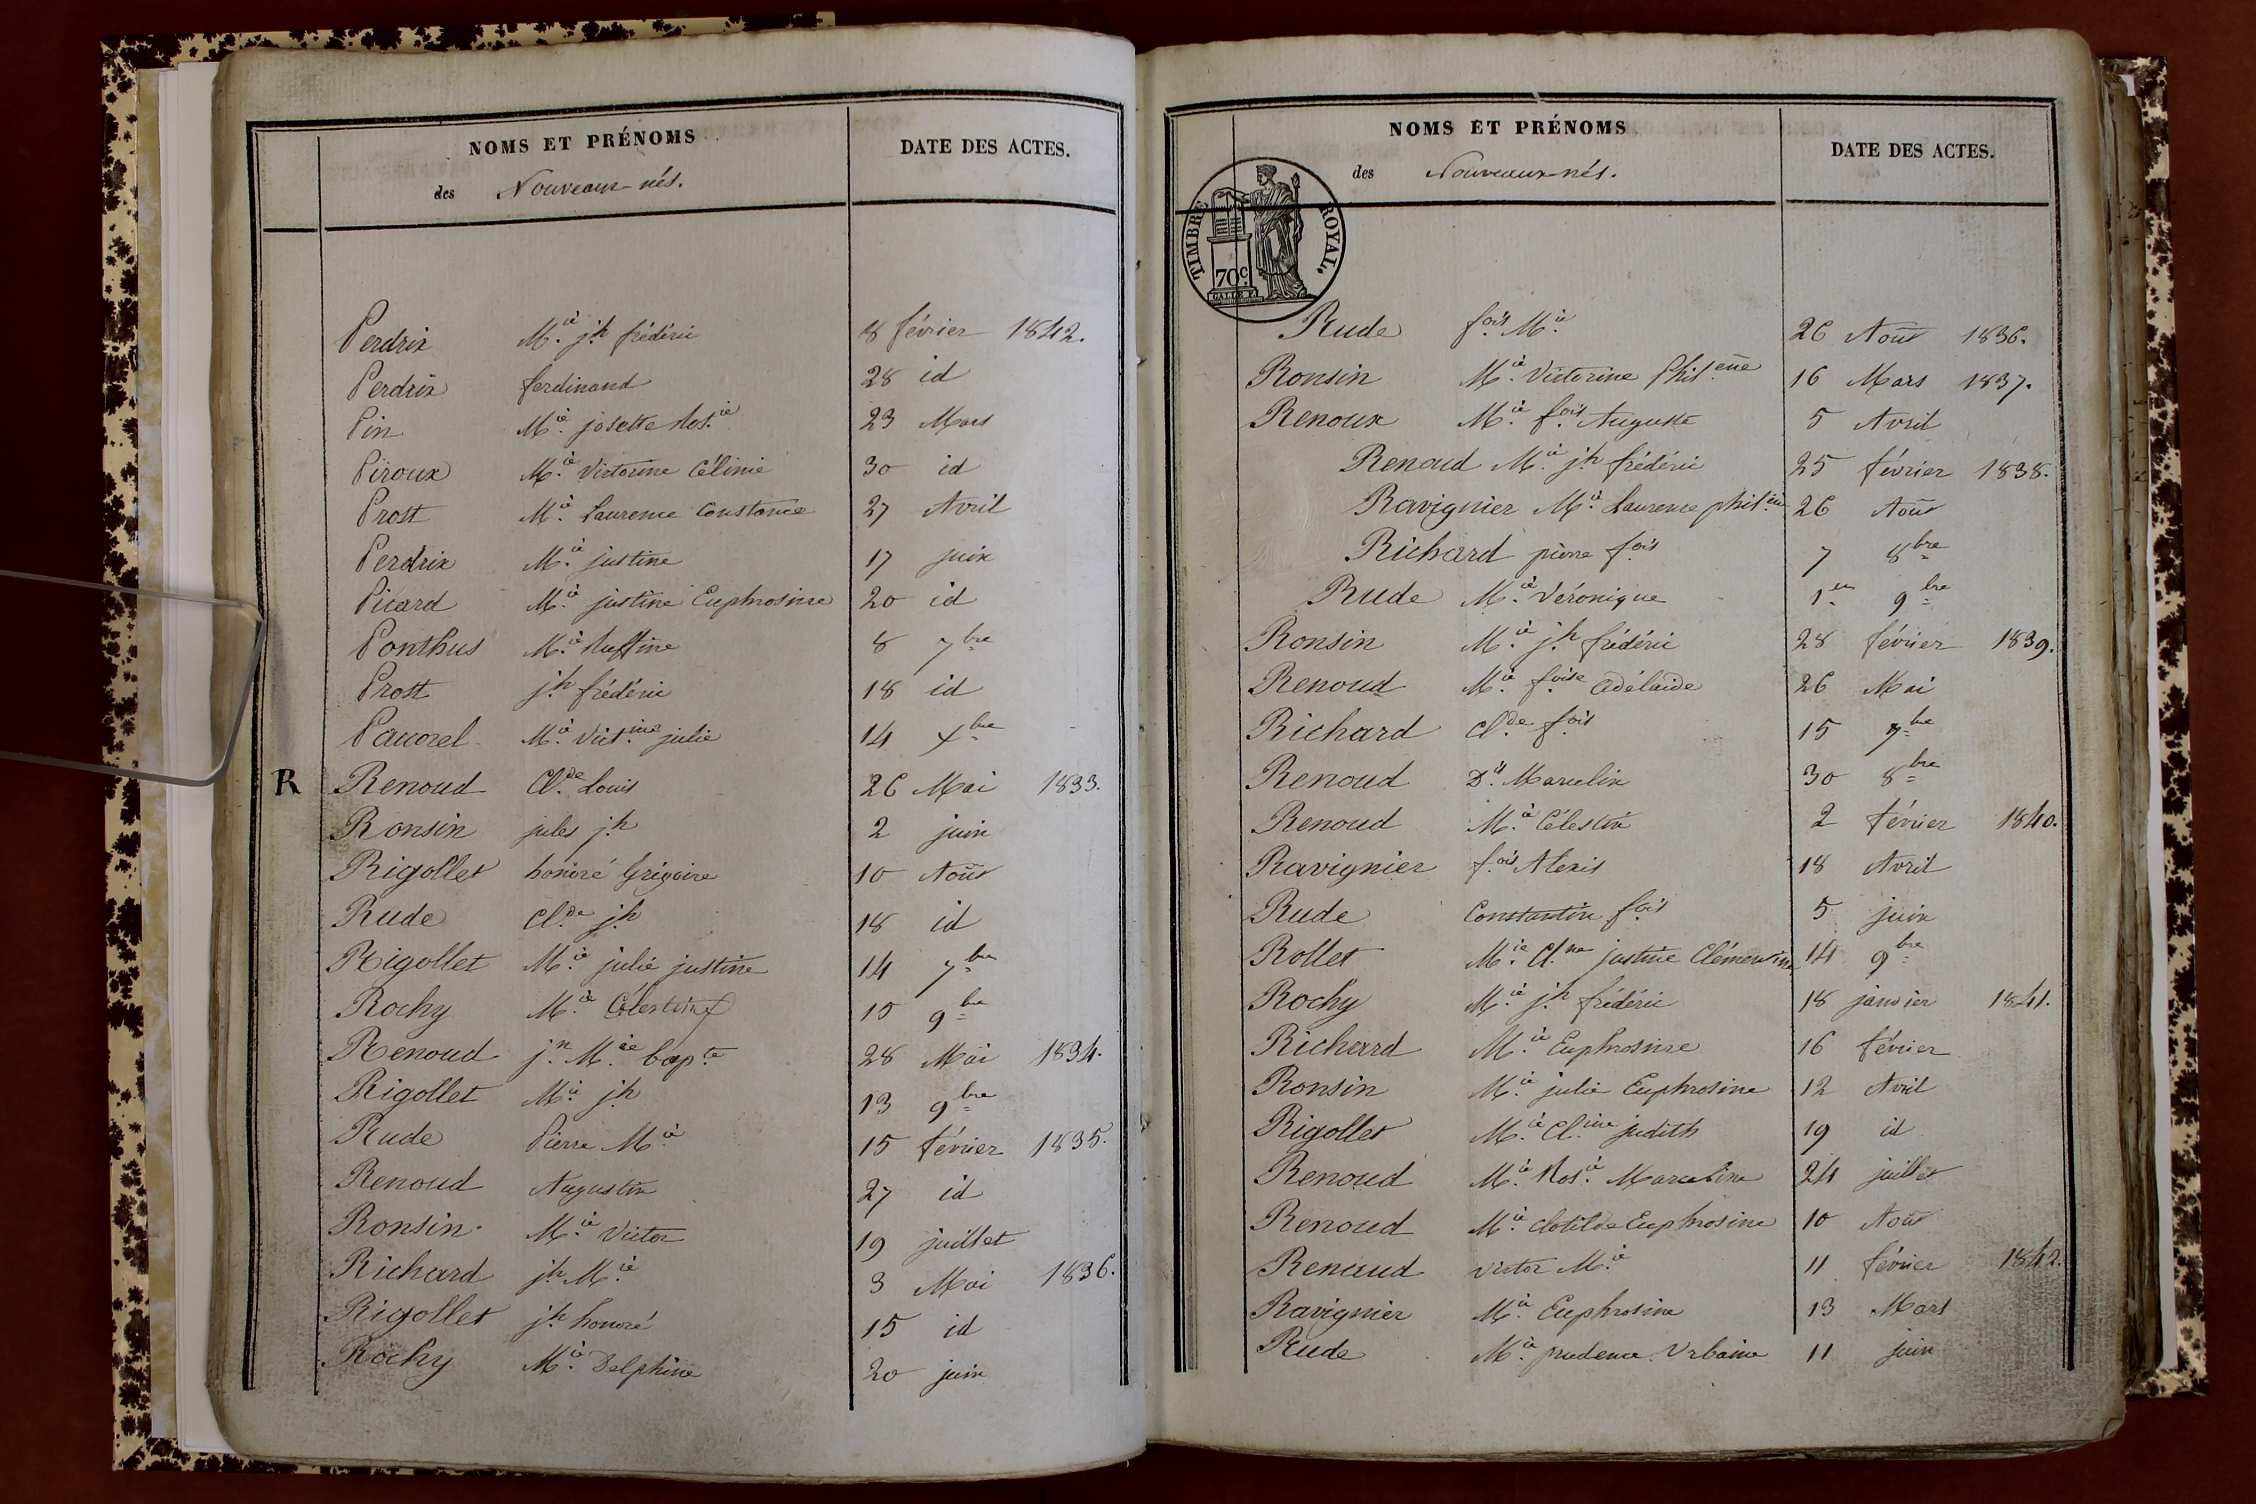 NOMS ET PRÉNOMS
DATE DES ACTES.
des Nouveaux-nés.
Perdrix M.ie j.h frédéric 8 février 1842.
Perdrix ferdinand 28 id
Pin M.ie josette Ros.ie 23 Mars
Piroux M.ie Victorine Célinie 30 id
Prost M.ie Laurence Constance 27 Avril
Perdrix M.ie justine 17 juin
Picard M.ie justine Euphrosine 20 id
Ponthus M.ie Ruffine 8 7bre
Prost j.h frédéric 18 id
M.ie Vict.ine julie 14 Xbre
R Renoud Cl.de Louis 26 Mai 1833.
Ronsin jules j.h 2 juin
Rigollet honoré Grégoire 10 Août
Rude Cl.de j.h 18 id
Rigollet M.ie julie justine 14 7bre
Rochy M.ie Célestin 10 9bre
Renoud j.n M.ie bap.te 28 Mai 1834.
Rigollet M.ie j.h 13 9bre
Rude Pierre M.ie 15 février 1835.
Renoud Augustin 27 id
Ronsin M.ie Victor 19 juillet
Richard j.h M.ie 3 Mai 1836.
Rigollet j.h honoré 15 id
Rochy M.ie Delphine 20 juin
NOMS ET PRÉNOMS
DATE DES ACTES.
des Nouveaux-nés.
TIMBRE ROYAL.
70c.
Rude f.ois M.ie 26 Août 1836.
Ronsin M.ie Victorine Phil.ène 16 Mars 1837.
Renoux M.ie f.ois Auguste 5 Avril
Renoud M.ie j.h frédéric 25 février 1838.
Ravignier M.ie Laurence phil.ène 26 Août
Richard pierre f.ois 7 8bre
Rude M.ie Véronique 1.er 9bre
Ronsin M.ie j.h frédéric 28 février 1839.
Renoud M.ie f.oise Adélaïde 26 Mai
Richard Cl.de f.ois 15 7bre
Renoud D.is Marcelin 30 8bre
Renoud M.ie Célestin 2 février 1840.
Ravignier f.ois Alexis 18 Avril
Rude Constantin f.ois 5 juin
Rollet M.ie Cl.ne justine Clémentine 14 9bre
Rochy M.ie j.h frédéric 18 janvier 1841.
Richard M.ie Euphrosine 16 février
Ronsin M.ie julie Euphrosine 12 Avril
Rigollet M.ie Cl.ine judith 19 id
Renoud M.ie Ros.ie Marceline 24 juillet
Renoud M.ie Clotilde Euphrosine 10 Août
Renaud victor M.ie 11 février 1842.
Ravignier M.ie Euphrosine 13 Mars
Rude M.ie prudence Urbaine 11 juin